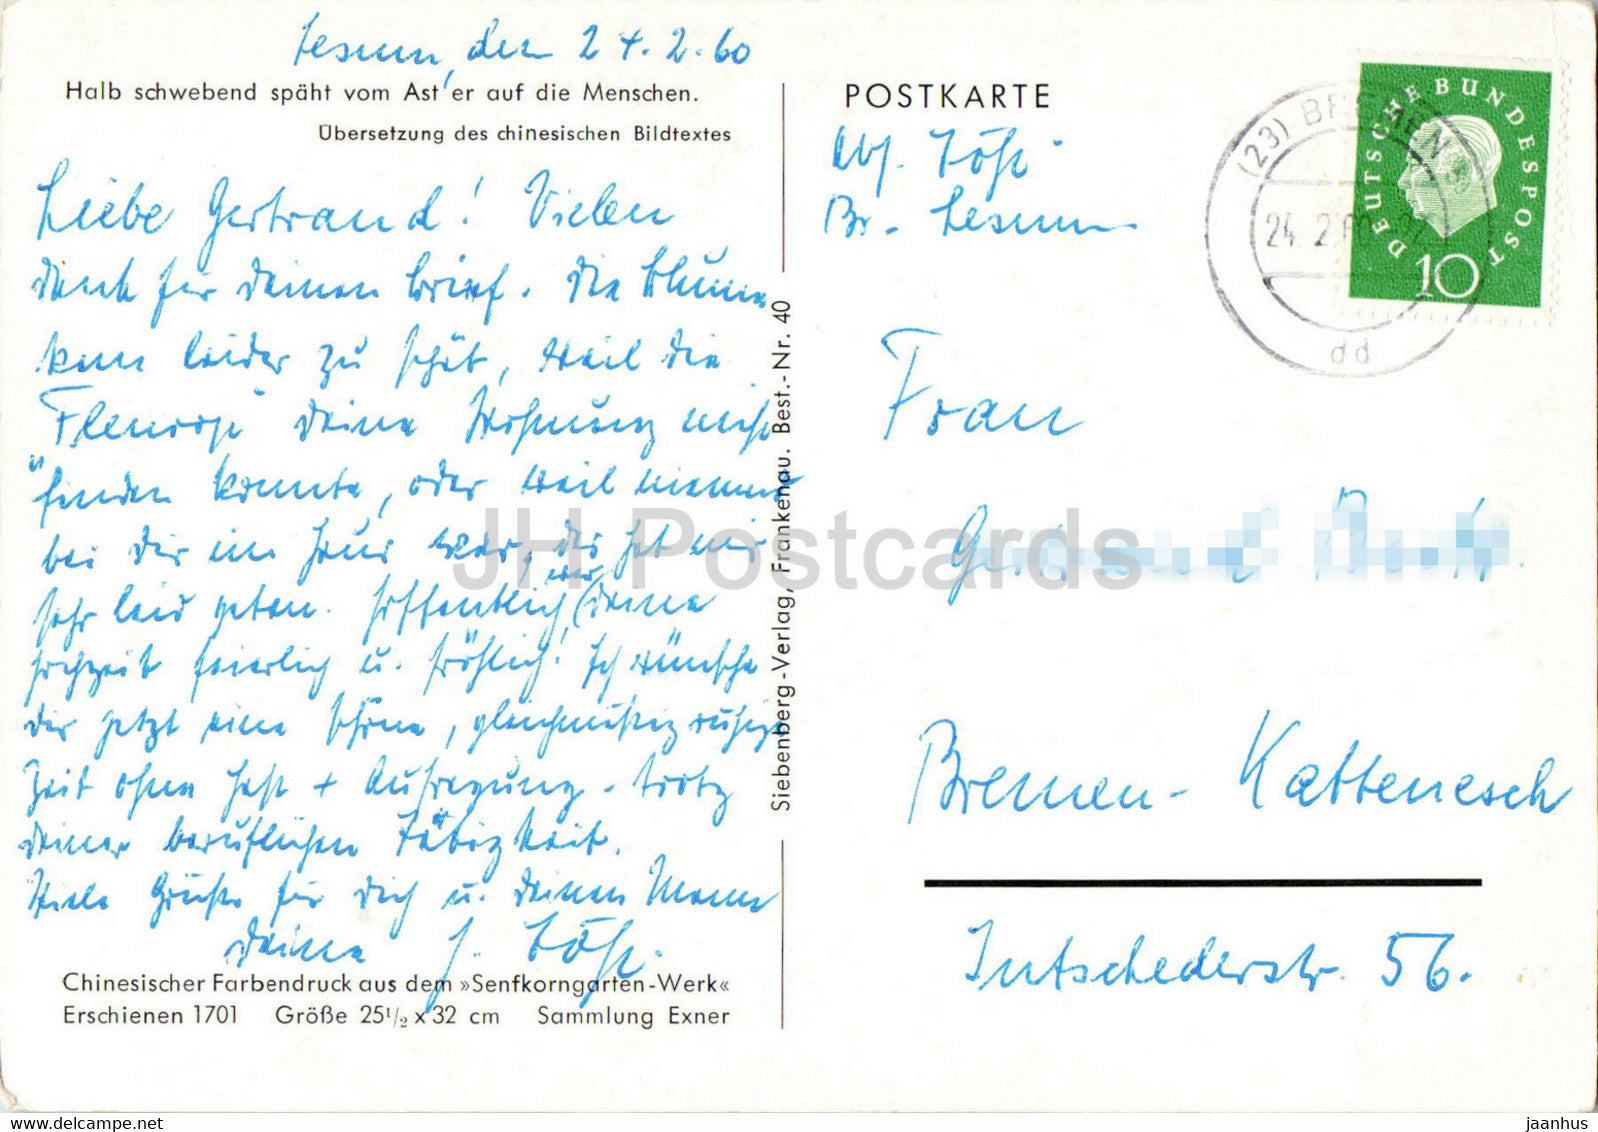 Lesum, den 24.2.60
Halb schwebend späht vom Ast er auf die Menschen.
Übersetzung des chinesischen Bildtextes
Liebe Gertraud! Vielen
Dank für Deinen Brief. Die Blumen
kamen leider zu spät, weil die
"Fleurop" Deine Wohnung nicht
finden konnte, oder weil niemand
bei Dir im Haus war, das hat mir
sehr leid getan. Hoffentlich war Deine
Hochzeit feierlich u. fröhlich! Ich wünsche
Dir jetzt eine schöne, gleichmäßig ruhige
Zeit ohne Hast + Aufregung - trotz
Deiner beruflichen Tätigkeit.
Viele Grüße für Dich u. Deinen Mann
Deine
Chinesischer Farbendruck aus dem »Senfkorngarten-Werk«
Erschienen 1701 Größe 25½ x 32 cm Sammlung Exner
Siebenberg-Verlag, Frankenau. Best.-Nr. 40
POSTKARTE
Abs.
Br. - Lesum
(23) BREMEN
24. 2. 60
dd
DEUTSCHE BUNDESPOST
10
Frau
Bremen - Kattenesch
Intschederstr. 56.
JH Postcards
www.delcampe.net
jaanhus